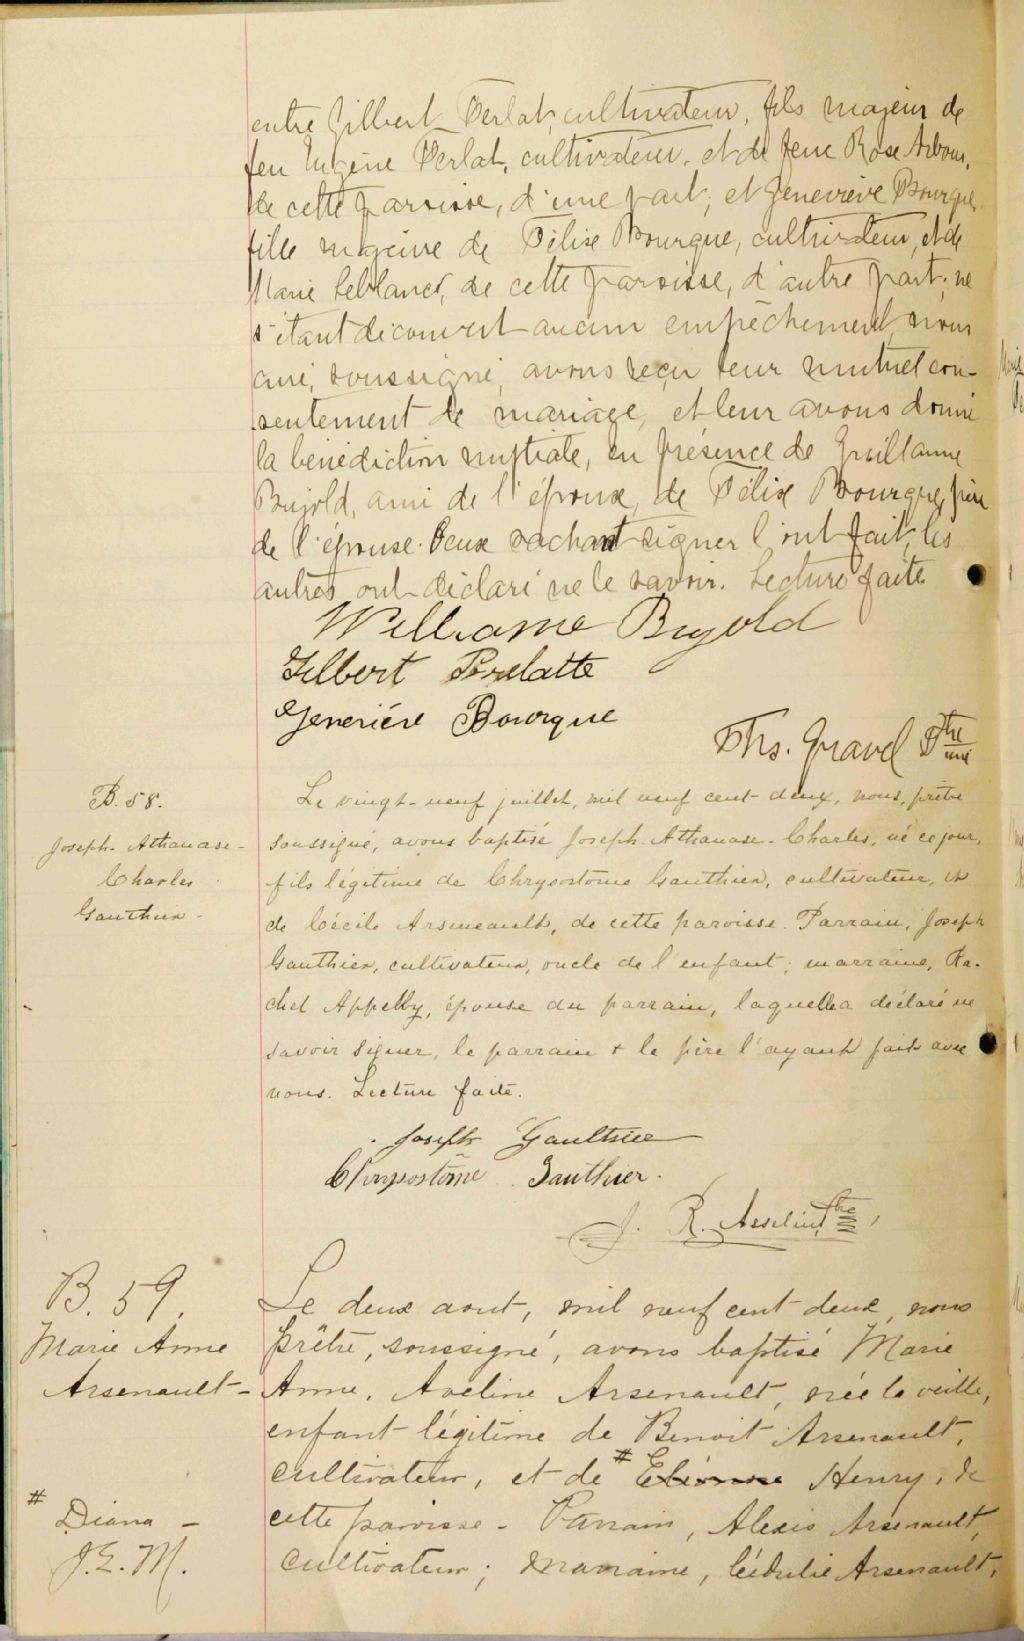 entre Gilbert Perlat, cultivateur, fils majeur de
feu Eugène Perlat, cultivateur, et de feue Rose Arbour,
de cette paroisse, d'une part; et Geneviève Bourque
fille majeure de Félix Bourque, cultivateur, et de
Marie Leblanc, de cette paroisse, d'autre part; ne
s'étant découvert aucun empêchement, nous
curé, soussigné, avons reçu leur mutuel con-
sentement de mariage, et leur avons donné
la bénédiction nuptiale, en présence de Guillaume
Bujold, ami de l'époux, de Félix Bourque, père
de l'épouse. Deux sachant signer l'ont fait, les
autres ont déclaré ne le savoir. Lecture faite
Williame Bujold
Gilbert Perlatte
Genevière Bourque
Ths. Gravel Ptre
curé
B. 58.
Joseph-Athanase-
Charles
Gauthier-
Le vingt-neuf juillet, mil neuf cent deux, nous, prêtre
soussigné, avons baptisé Joseph-Athanase-Charles, né ce jour,
fils légitime de Chrysostôme Gauthier, cultivateur, et
de Cécile Arseneault, de cette paroisse. Parrain, Joseph
Gauthier, cultivateur, oncle de l'enfant; marraine, Ra-
chel Appelby, épouse du parrain, laquelle a déclaré ne
savoir signer, le parrain & le père l'ayant fait avec
nous. Lecture faite.
Joseph Gauthier
Chrysostôme Gauthier.
J. R. Asselin, Ptre
B. 59.
Marie Anne
Arsenault-
Le deux aout, mil neuf cent deux, nous
prêtre, soussigné, avons baptisé Marie
Anne, Aveline Arsenault, née la veille,
enfant légitime de Benoit Arsenault,
cultivateur, et de # Henry, de
cette paroisse - Parrain, Alexis Arsenault,
cultivateur; marraine, Cédulie Arsenault,
# Diana -
J. E. M.